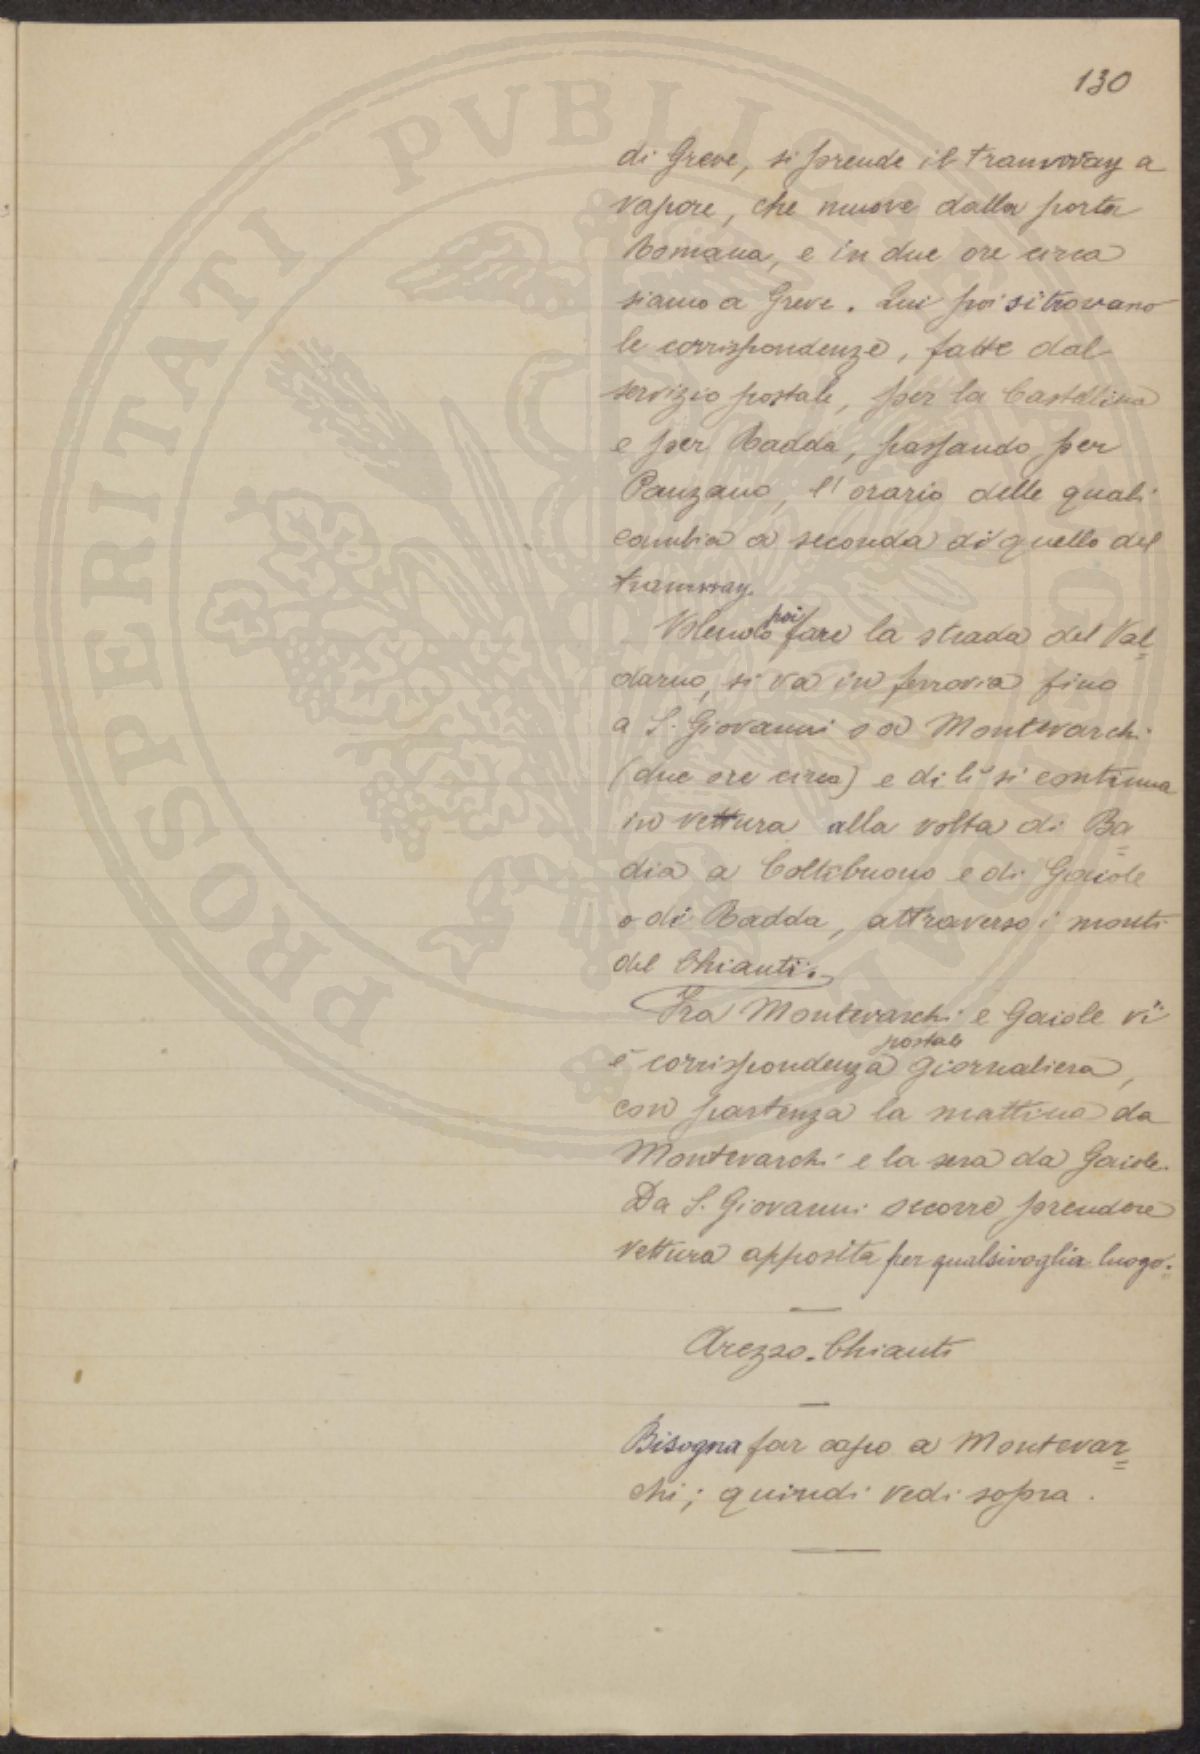 130
di Greve, si prende il tramway a
vapore, che muove dalla porta
Romana, e in due ore circa
siamo a Greve. Qui poi si trovano
le corrispondenze, fatte dal
servizio postale, per la Castellina
e per Radda, passando per
Panzano, l'orario delle quali
cambia a seconda di quello del
tramway.
Volendo poi fare la strada del Val=
darno, si va in ferrovia fino
a S. Giovanni o a Montevarchi
(due ore circa) e di lì si continua
in vettura alla volta di Ba=
dia a Coltibuono e di Gaiole
o di Radda, attraverso i monti
del Chianti.
Fra Montevarchi e Gaiole vi
è corrispondenza postale giornaliera,
con partenza la mattina da
Montevarchi e la sera da Gaiole.
Da S. Giovanni occorre prendere
vettura apposita per qualsivoglia luogo.
Arezzo-Chianti
Bisogna far capo a Montevar=
chi; quindi vedi sopra.
PROSPERITATI PVBLICAE AVGENDAE